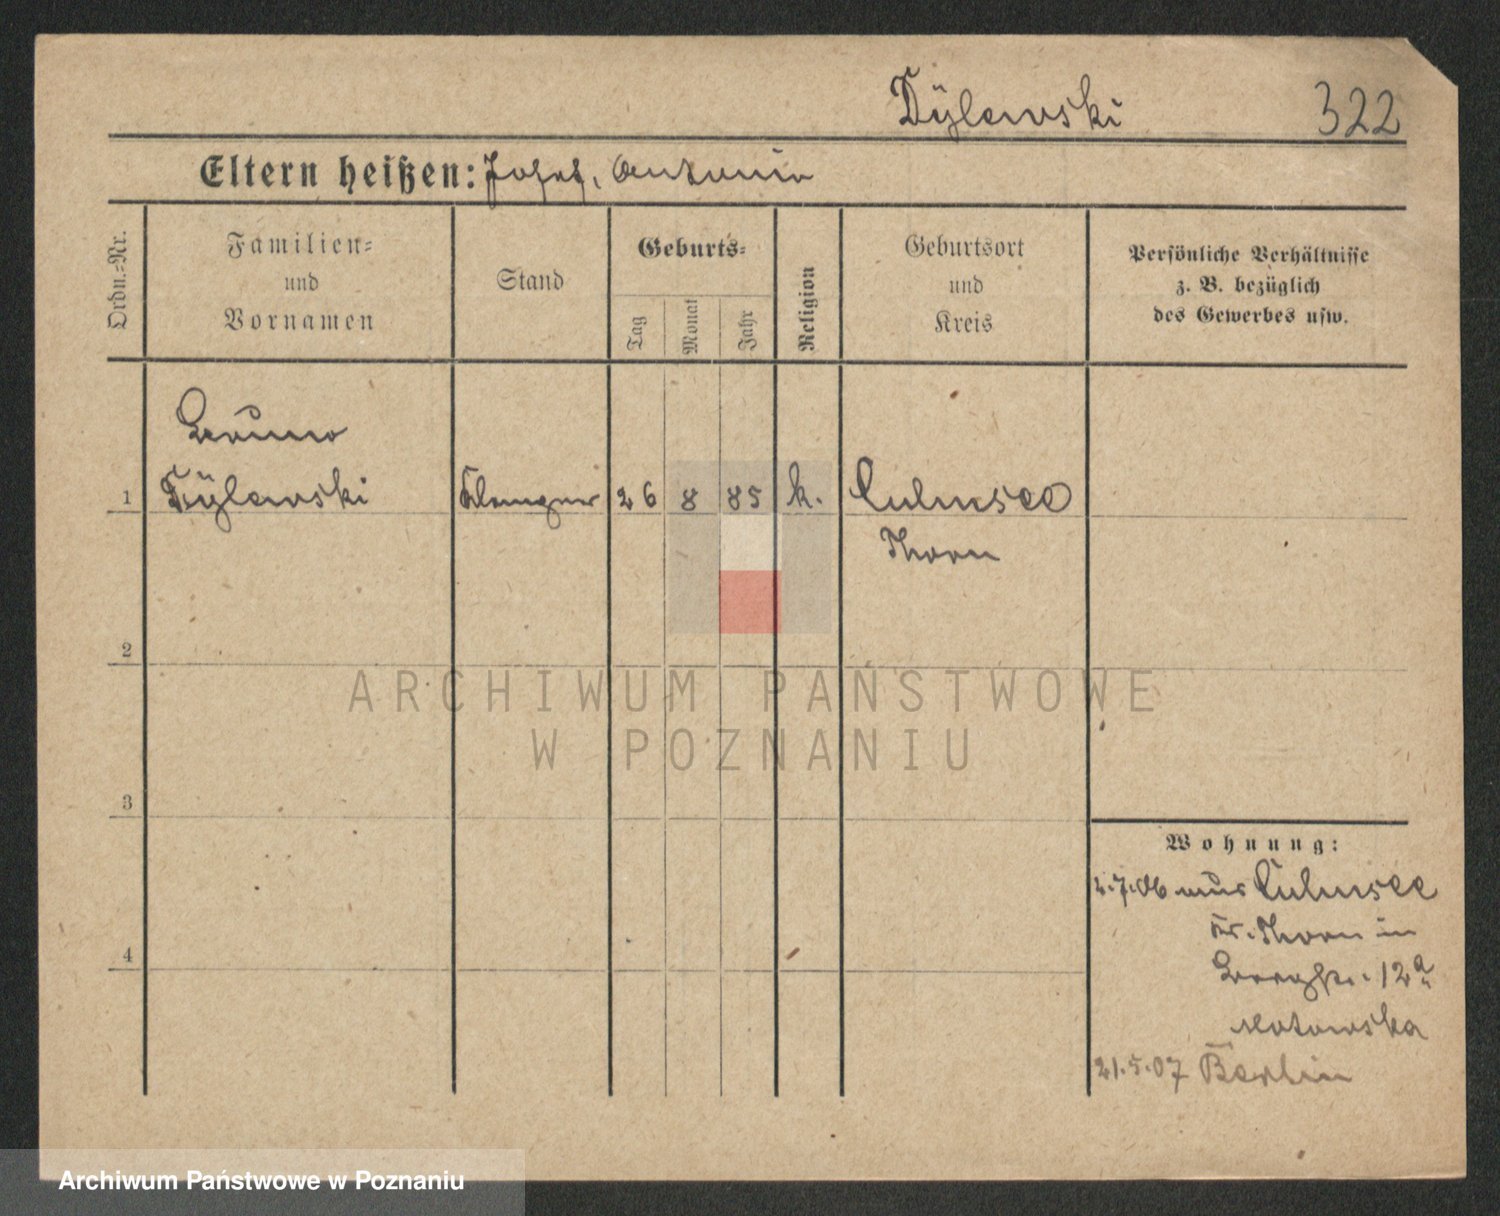 Dylewski 322
Eltern heißen: Josef, Antonia
Ordn.=Nr.
Familien=
und
Vornamen
Stand
Geburts=
Tag
Monat
Jahr
Religion
Geburtsort
und
Kreis
Persönliche Verhältnisse
z. B. bezüglich
des Gewerbes usw.
Bruno
1 Dylewski Klempner 26 8 85 k. Culmsee
Thorn
2
3
4
Wohnung:
2.7.06 aus Culmsee
Kr. Thorn in
12a
21.5.07 Berlin
ARCHIWUM PAŃSTWOWE
W POZNANIU
Archiwum Państwowe w Poznaniu